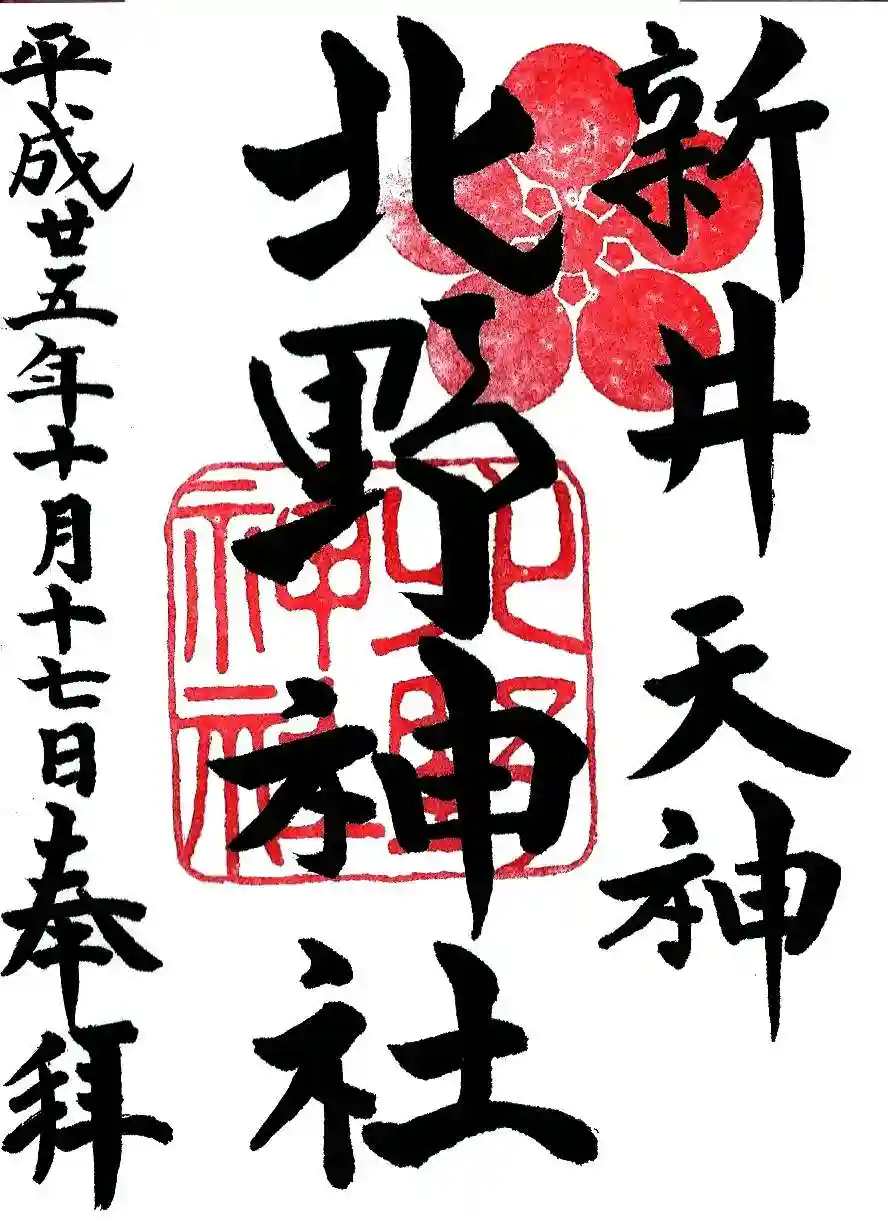 新井天神
北野神社
平成廿五年十月十七日奉拜
北野
神社